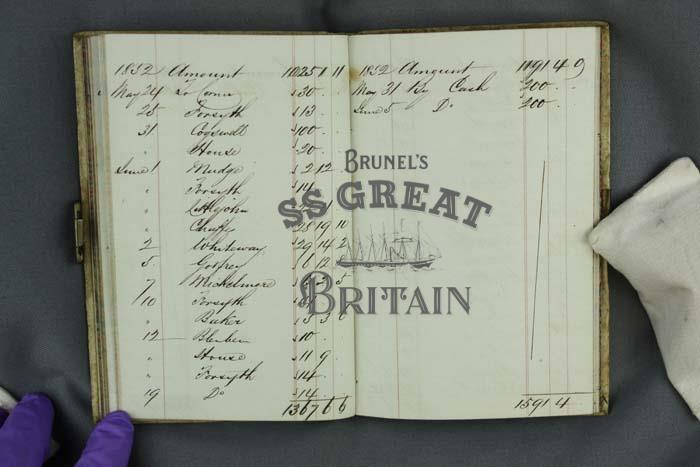 1852 Amount 1025 1 11
May 24 To Cornu £30
25 Forsyth £13
31 Cogswell £100
" House £20
June 1 Mudge £2 12
" Forsyth £14
" Littlejohn
" Chaffe £28 19 10
2 Whiteway £29 14 2
5 Godfrey £6 12
7 Michelmore
10 Forsyth
" Baker £5 3 6
12 £10
" House £11 9
" Forsyth £14
19 Do £14
1367 6 6
1852 Amount 1191 4 9
May 31 By Cash £200
June 5 Do £200
1591 4
BRUNEL'S
SS GREAT
BRITAIN